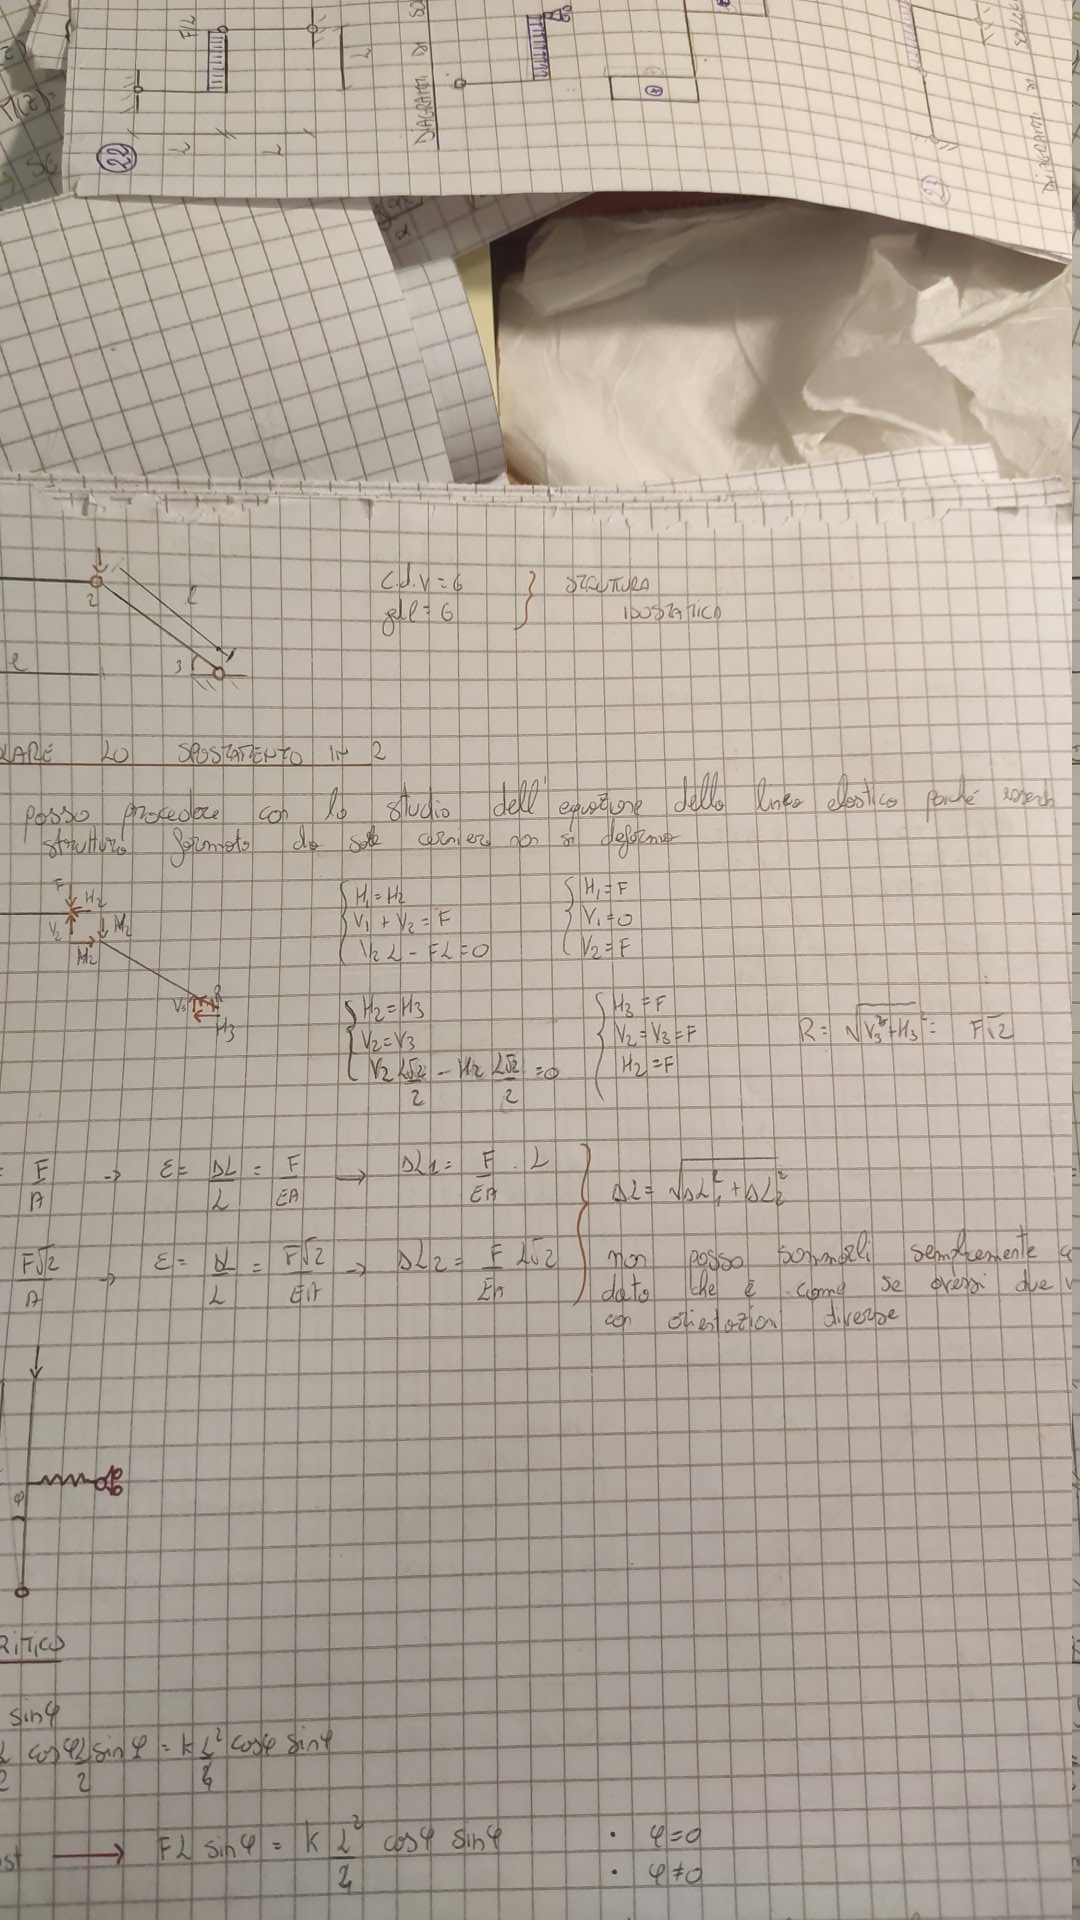 22
L
L
F/L
L
DIAGRAMMI DI
23
DIAGRAMMI DI
T(z)=
SE
2
l
3
l
c.d.v = 6
gdl = 6
STRUTTURA
ISOSTATICA
LO SPOSTAMENTO IN 2
posso procedere con lo studio dell' equazione della linea elastica poiché
struttura formata da sole cerniere non si deforma
F
H2
V2
H2
R
H3
H1 = H2
V1 + V2 = F
V2 L - FL = 0
H1 = F
V1 = 0
V2 = F
H2 = H3
V2 = V3
V2 L√2/2 - H2 L√2/2 = 0
H3 = F
V2 = V3 = F
H2 = F
R = √V3² + H3² = F√2
= F/A → ε = ΔL/L = F/EA → ΔL1 = F/EA · L
ΔL = √ΔL1² + ΔL2²
F√2/A → ε = ΔL/L = F√2/EA → ΔL2 = F/EA L√2
non posso sommarli semplicemente
dato che è come se avessi due
con orientazioni diverse
φ
sinφ
cosφ L/2 sinφ = K L²/4 cosφ sinφ
→ FL sinφ = K L²/4 cosφ sinφ
· φ=0
· φ≠0